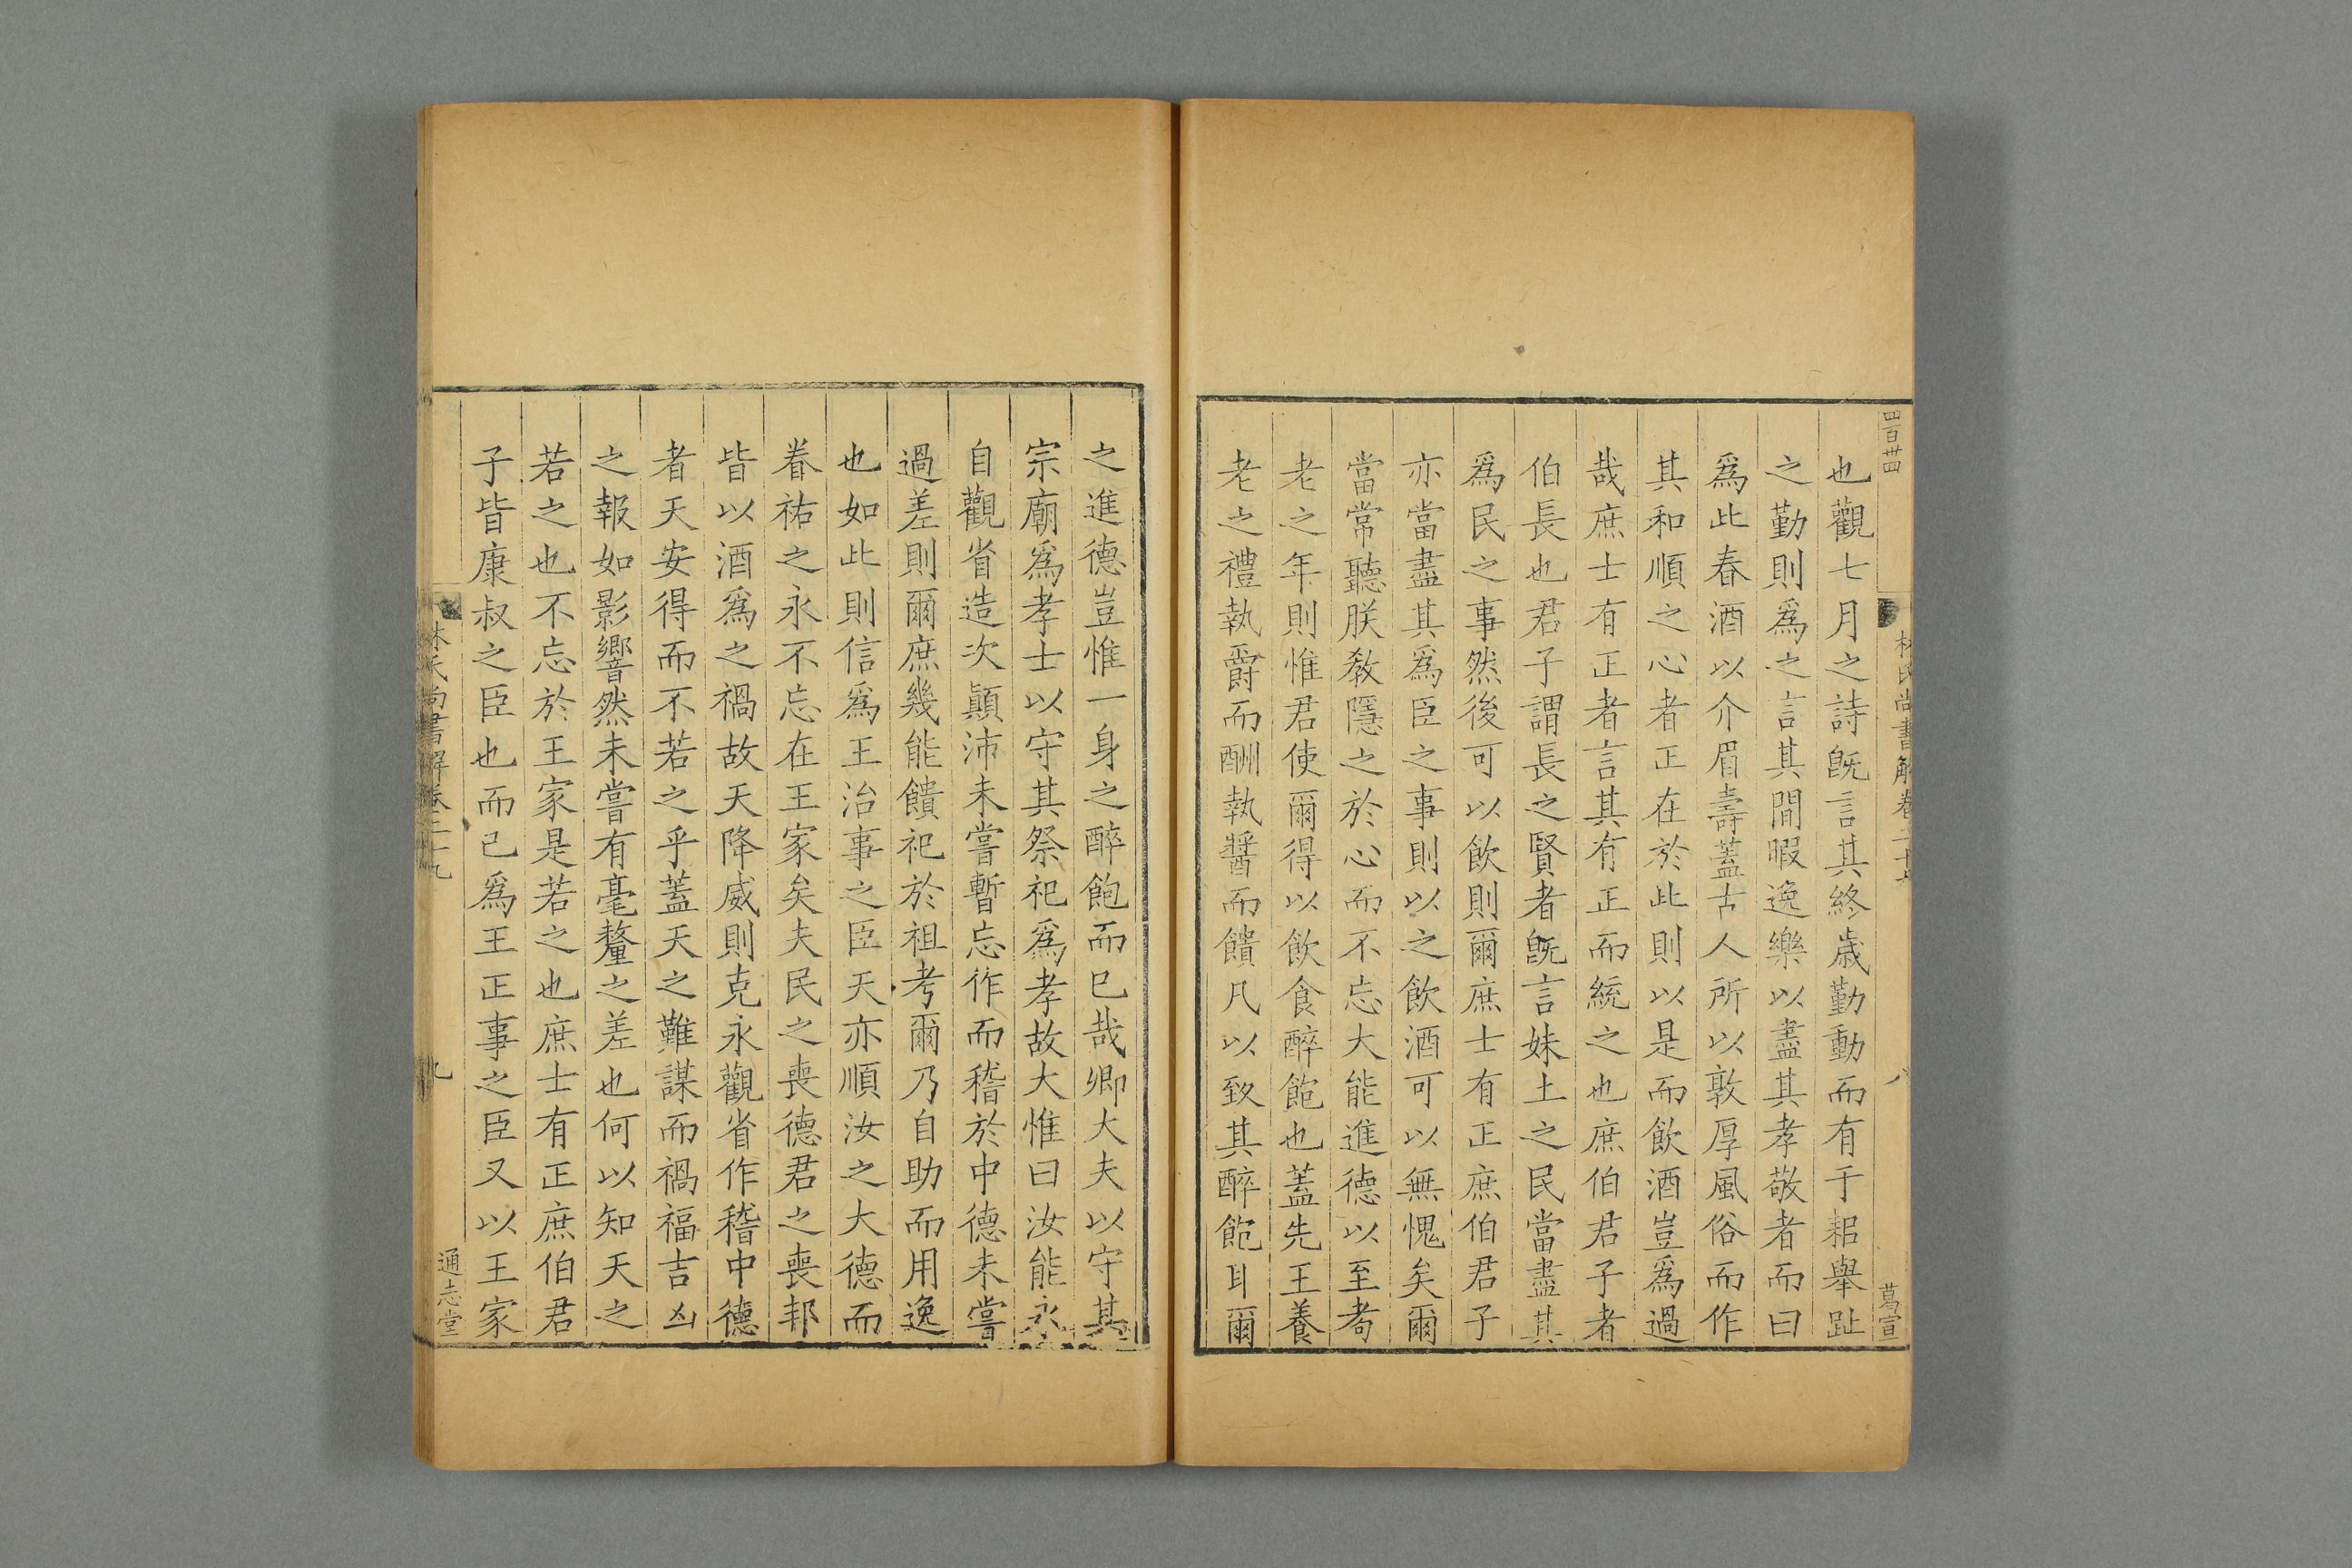 四百廿四
林氏尚書解卷二十九
八
葛宣
也觀七月之詩旣言其終歲勤動而有于耜舉趾
之勤則爲之言其閒暇逸樂以盡其孝敬者而曰
爲此春酒以介眉壽蓋古人所以敦厚風俗而作
其和順之心者正在於此則以是而飲酒豈爲過
哉庶士有正者言其有正而統之也庶伯君子者
伯長也君子謂長之賢者旣言妹土之民當盡其
爲民之事然後可以飲則爾庶士有正庶伯君子
亦當盡其爲臣之事則以之飲酒可以無愧矣爾
當常聽朕敎隱之於心而不忘大能進德以至耇
老之年則惟君使爾得以飲食醉飽也蓋先王養
老之禮執爵而酬執醬而饋凡以致其醉飽耳爾
之進德豈惟一身之醉飽而已哉卿大夫以守其
宗廟爲孝士以守其祭祀爲孝故大惟曰汝能永
自觀省造次顛沛未嘗暫忘作而稽於中德未嘗
過差則爾庶幾能饋祀於祖考爾乃自助而用逸
也如此則信爲王治事之臣天亦順汝之大德而
眷祐之永不忘在王家矣夫民之喪德君之喪邦
皆以酒爲之禍故天降威則克永觀省作稽中德
者天安得而不若之乎蓋天之難諶而禍福吉凶
之報如影響然未嘗有毫釐之差也何以知天之
若之也不忘於王家是若之也庶士有正庶伯君
子皆康叔之臣也而已爲王正事之臣又以王家
林氏尚書解卷二十九
九
通志堂